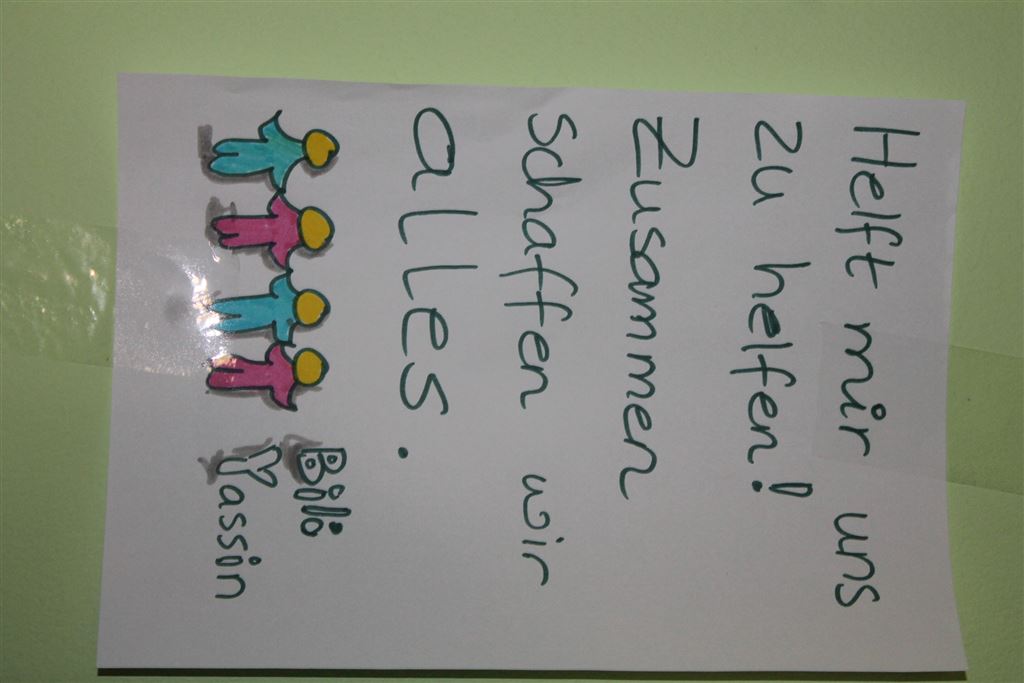 Helft mir uns
zu helfen!
Zusammen
schaffen wir
alles.
Bili
Yassin